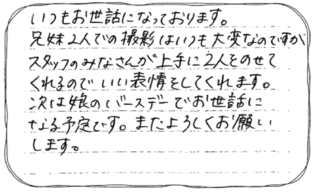 いつもお世話になっております。
兄妹2人での撮影はいつも大変なのですが
スタッフのみなさんが上手に2人をのせて
くれるのでいい表情をしてくれます。
次は娘のバースデーでお世話に
なる予定です。またよろしくお願い
します。